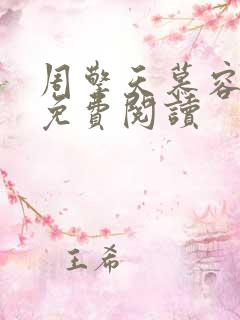 周擎天慕容
免費閱讀
王希